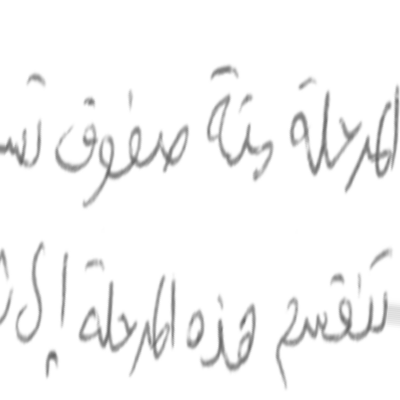 المرحلة ستة صفوف
تنقسم هذه المرحلة إلى